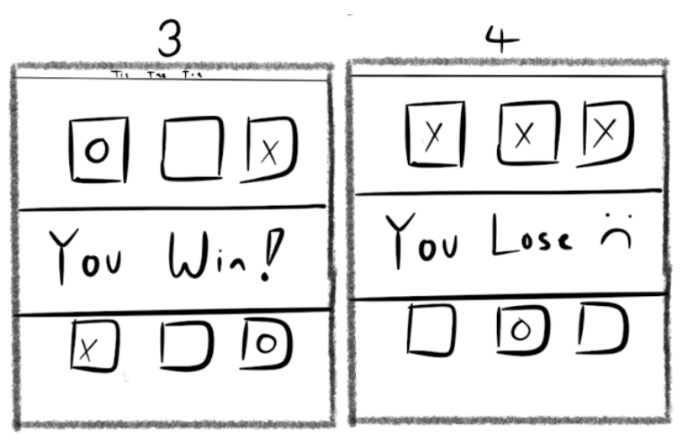 3
Tic Tac Toe
O X
You Win!
X O
4
X X X
You Lose :(
O